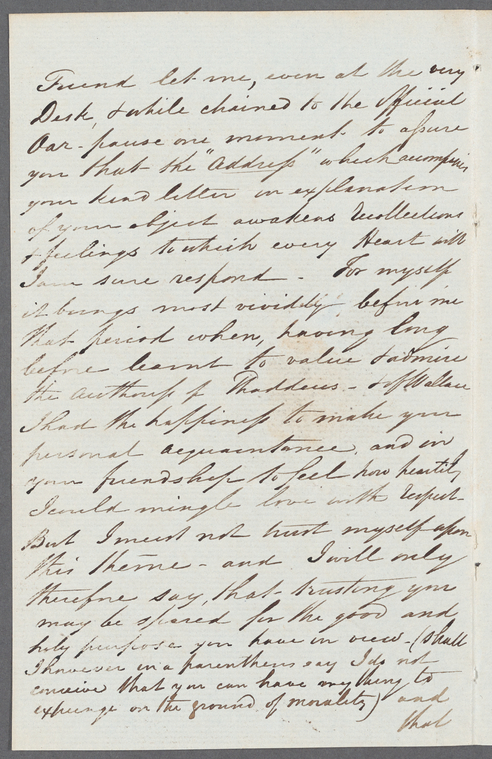 Friend let me, even at the very
Desk, & while chained to the Official
Oar - pause one moment to assure
you that the "Address" which accompanies
your kind letter in explanation
of your object awakens recollections
& feelings to which every Heart will
I am sure respond - For myself
it brings most vividly before me
that period when, having long
before learnt to value & admire
the Authoress of Thaddeus - & of Wallace
I had the happiness to make your
personal acquaintance, and in
your friendship to feel how heartily
I could mingle love with respect -
But I must not trust myself upon
this theme - and I will only
therefore say, that trusting you
may be spared for the good and
holy purpose you have in view - (shall
I however in a parenthesis say I do not
conceive that you can have anything to
expunge on the ground of morality) and
that